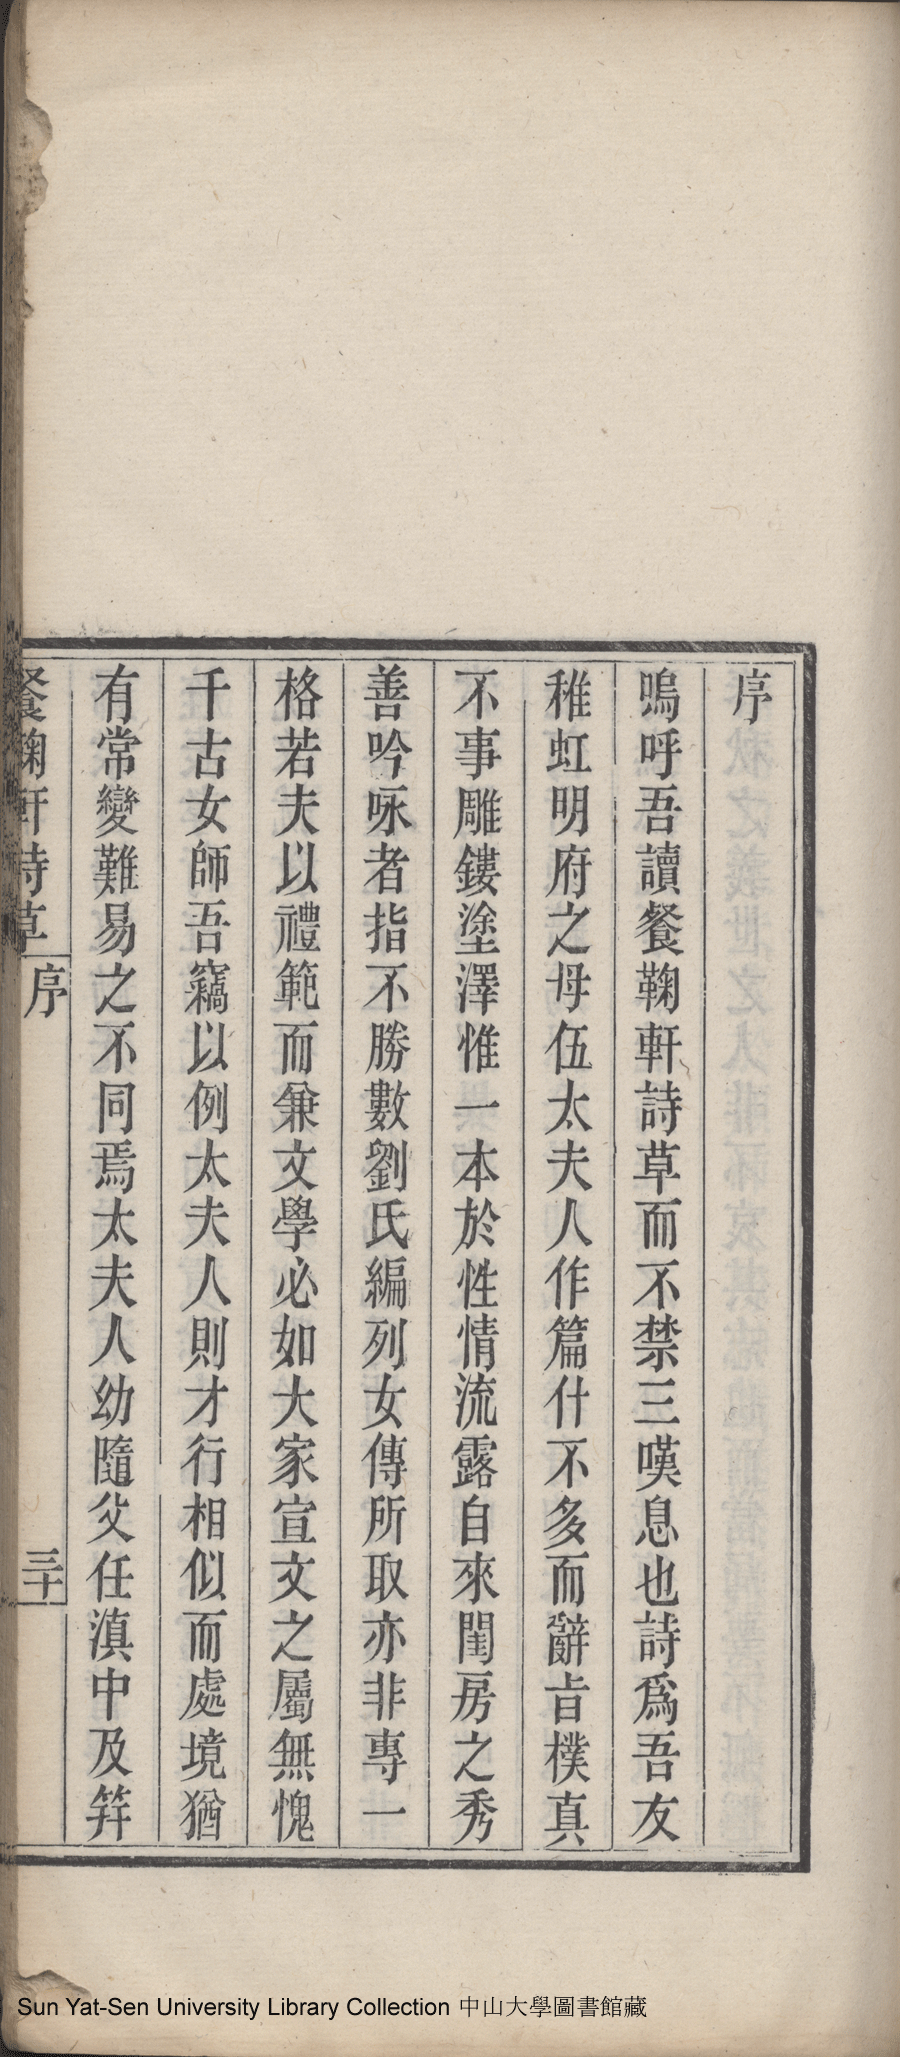 序
嗚呼吾讀餐鞠軒詩草而不禁三嘆息也詩爲吾友
稚虹明府之母伍太夫人作篇什不多而辭旨樸真
不事雕鏤塗澤惟一本於性情流露自來閨房之秀
善吟咏者指不勝數劉氏編列女傳所取亦非專一
格若夫以禮範而兼文學必如大家宣文之屬無愧
千古女師吾竊以例太夫人則才行相似而處境猶
有常變難易之不同焉太夫人幼隨父任滇中及笄
餐鞠軒詩草 序 三十
Sun Yat-Sen University Library Collection 中山大學圖書館藏